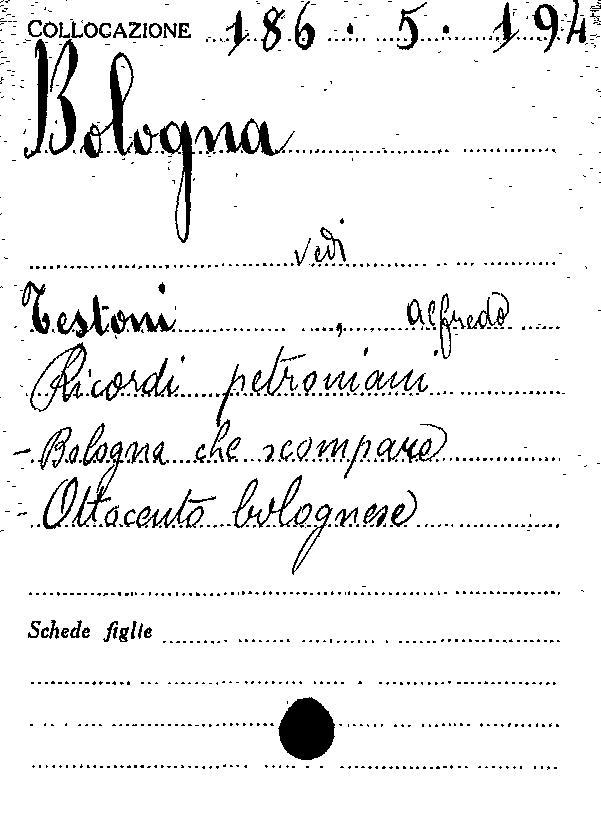 COLLOCAZIONE 186 · 5 · 194
Bologna
vedi
Testoni , Alfredo
Ricordi petroniani
- Bologna che scompare
- Ottocento bolognese
Schede figlie